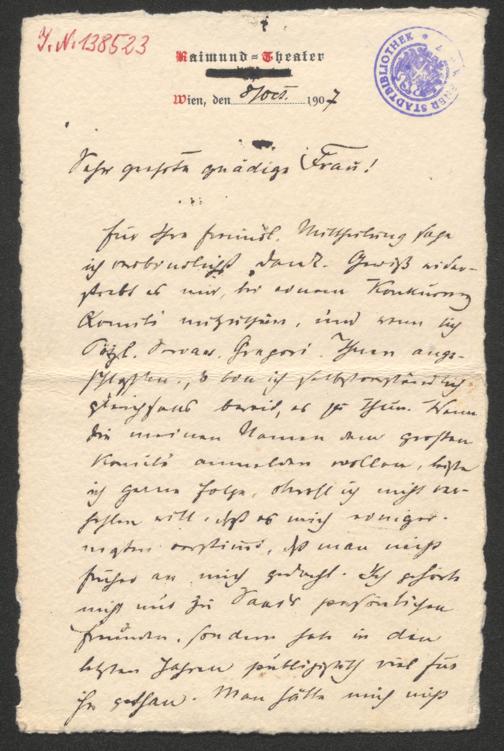 J. N. 138523
Raimund=Theater
WIENER STADTBIBLIOTHEK
Wien, den 8/Oct. 1907
Sehr geehrte gnädige Frau!
für Ihre freundl. Mittheilung sage
ich verbindlichst Dank. Gewiß wider-
strebt es mir, bei einem Konkurrenz
Komité mitzuthun, und wenn sich
Pötzl, Gregori Ihnen ange-
schlossen, so bin ich selbstverständlich
gleichfalls bereit, es zu thun. Wenn
Sie meinen Namen dem großen
Komité anmelden wollen, leiste
ich gerne Folge, obwohl ich nicht ver-
hehlen will, daß es mich einiger-
maßen verstimmt, daß man nicht
früher an mich gedacht. Ich gehörte
nicht nur zu Saars persönlichen
Freunden, sondern habe in den
letzten Jahren publizistisch viel für
ihn gethan. Man hätte mich nicht